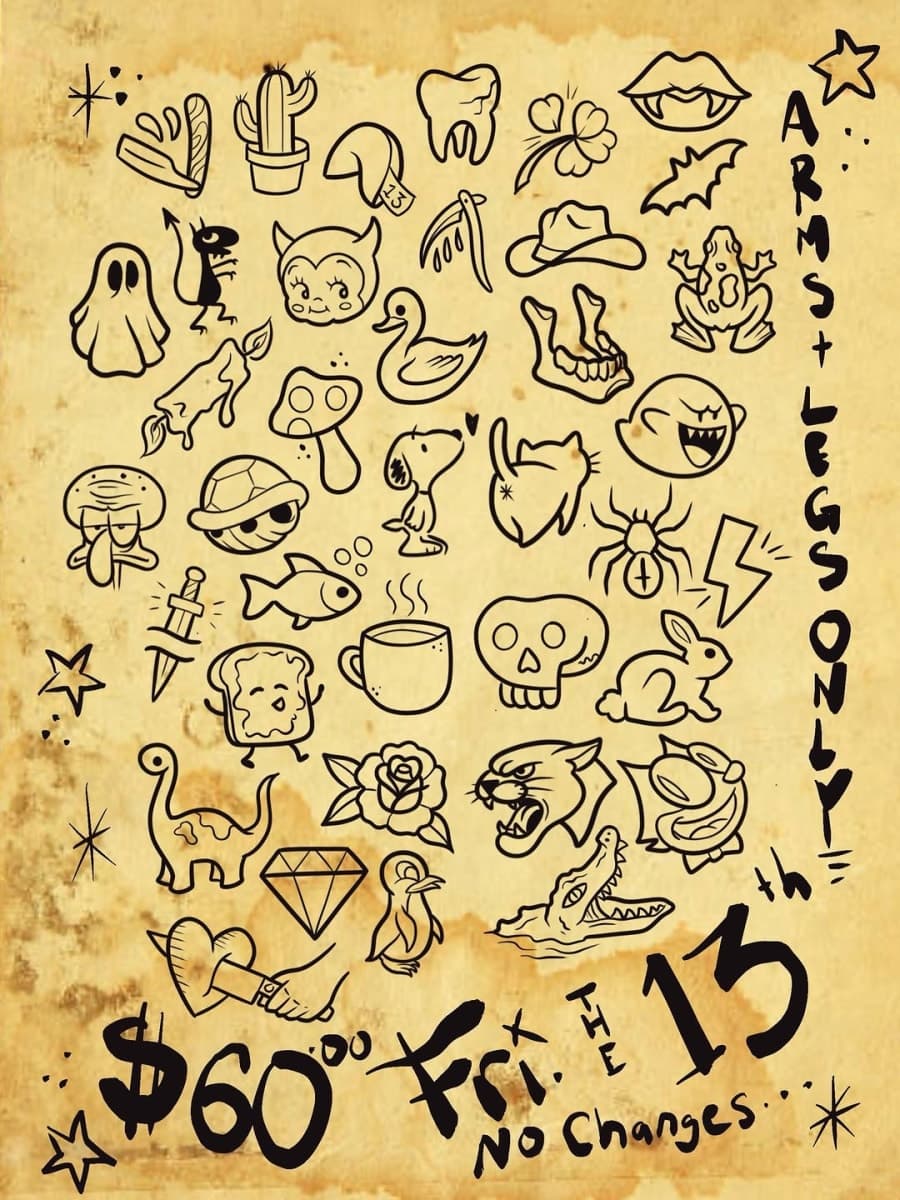 13
ARMS + LEGS ONLY
$60.00
Fri. THE 13th
No Changes...